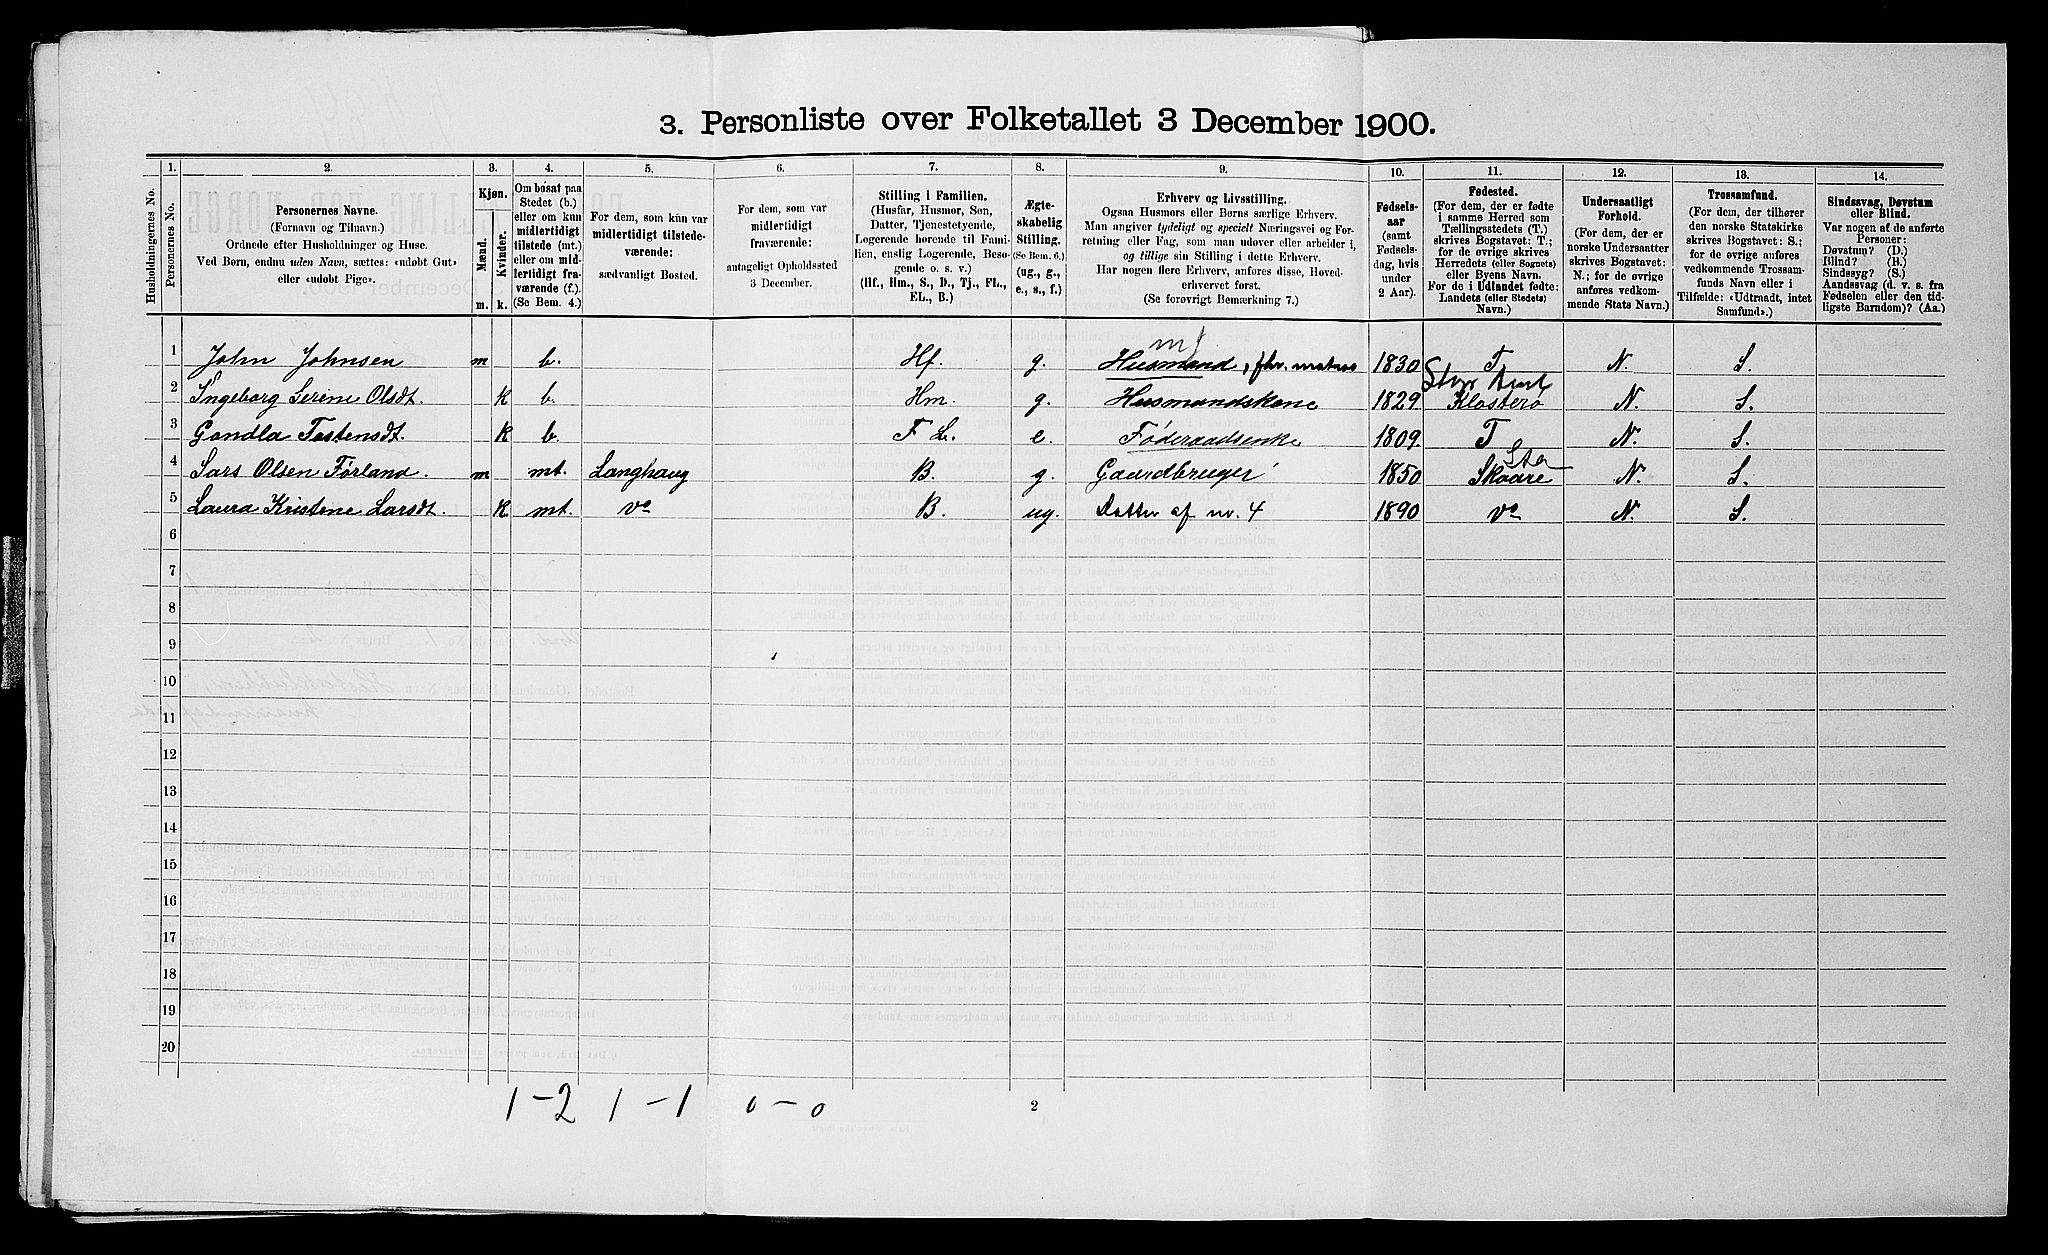 3. Personliste over Folketallet 3 December 1900.
Husholdningernes No.
1.
Personernes No.
2.
Personernes Navne.
(Fornavn og Tilnavn.)
Ordnede efter Husholdninger og Huse.
Ved Børn, endnu uden Navn, sættes: «udøbt Gut»
eller «udøbt Pige».
3.
Kjøn.
Mænd.
Kvinder.
m.
k.
4.
Om bosat paa
Stedet (b.)
eller om kun
midlertidigt
tilstede (mt.)
eller om mid-
lertidigt fra-
værende (f.).
(Se Bem. 4.)
5.
For dem, som kun var
midlertidigt tilstede-
værende:
sædvanligt Bosted.
6.
For dem, som var
midlertidigt
fraværende:
antageligt Opholdssted
3 December.
7.
Stilling i Familien.
(Husfar, Husmor, Søn,
Datter, Tjenestetyende,
Logerende hørende til Fami-
lien, enslig Logerende, Besø-
gende o. s. v.)
(Hf., Hm., S., D., Tj., FL.,
EL., B.)
8.
Ægte-
skabelig
Stilling.
(Se Bem. 6.)
(ug., g.,
e., s., f.)
9.
Erhverv og Livsstilling.
Ogsaa Husmors eller Børns særlige Erhverv.
Man angiver tydeligt og specielt Næringsvei og For-
retning eller Fag, som man udøver eller arbeider i,
og tillige sin Stilling i dette Erhverv.
Har nogen flere Erhverv, anføres disse, Hoved-
erhvervet først.
(Se forøvrigt Bemærkning 7.)
10.
Fødsels-
aar
(samt
Fødsels-
dag, hvis
under
2 Aar).
11.
Fødested.
(For dem, der er fødte
i samme Herred som
Tællingsstedets (T.)
skrives Bogstavet: T.;
for de øvrige skrives
Herredets (eller Sognets)
eller Byens Navn.
For de i Udlandet fødte:
Landets (eller Stedets)
Navn.)
12.
Undersaatligt
Forhold.
(For dem, der er
norske Undersaatter
skrives Bogstavet:
N.; for de øvrige
anføres vedkom-
mende Stats Navn.)
13.
Trossamfund.
(For dem, der tilhører
den norske Statskirke
skrives Bogstavet: S.;
for de øvrige anføres
vedkommende Trossam-
funds Navn eller i
Tilfælde: «Udtraadt, intet
Samfund».)
14.
Sindssvag, Døvstum
eller Blind.
Var nogen af de anførte
Personer:
Døvstum? (D.)
Blind? (B.)
Sindssyg? (S.)
Aandssvag (d. v. s. fra
Fødselen eller den tid-
ligste Barndom)? (Aa.)
1 John Johnsen m b. Hf. g. Husmand, fhv. matros 1830 T N. S.
2 Ingeborg Serine Olsdt. k b. Hm. g. Husmandskone 1829 Klosterø N. S.
3 Gondla Tostensdt. k b. F L. e. Føderaadsenke 1809. T N. S.
4 Lars Olsen Førland. m mt. Langhaug B. g. Gaardbruger 1850 Skaare N. S.
5 Laura Kristene Larsdt. k mt. do B. ug. Datter af nr. 4 1890 do N. S.
6
7
8
9
10
11
12
13
14
15
16
17
18
19
20
1-2 1-1 0-0
2